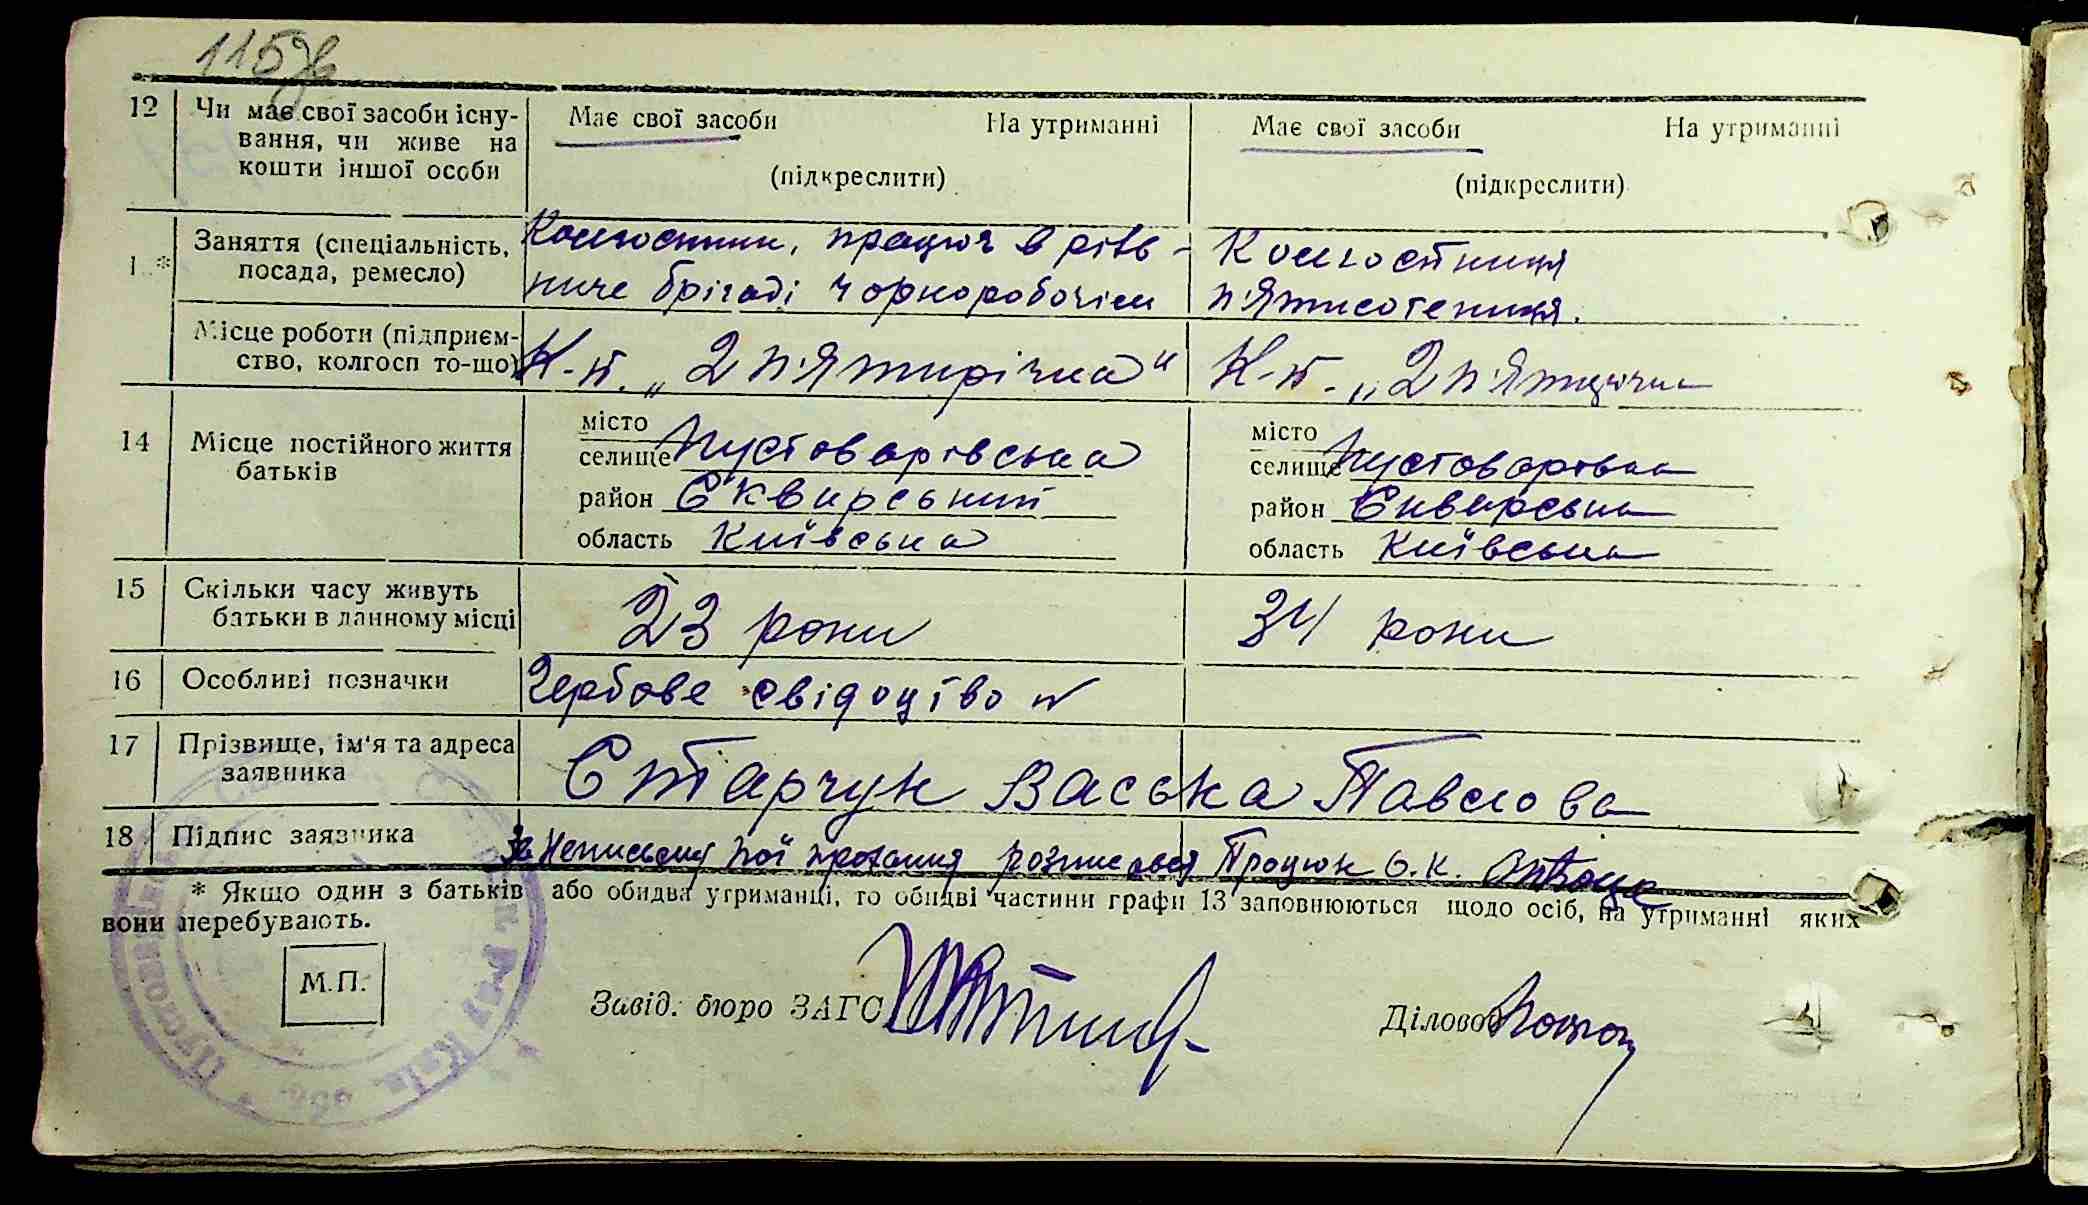 115
12 Чи має свої засоби існу-
вання, чи живе на
кошти іншої особи
Має свої засоби На утриманні
(підкреслити)
Має свої засоби На утриманні
(підкреслити)
1 * Заняття (спеціальність,
посада, ремесло)
Колгоспник, працює в рів-
ниче брігаді чорноробочім
Колгостниця
п'ятисотениця.
Місце роботи (підприєм-
ство, колгосп то-що)
К-п. „2 п'ятирічка"
К-п. „2 п'ятирічка
14 Місце постійного життя
батьків
місто
селище Пустоварівська
район Сквирський
область Київська
місто
селище Пустоварівка
район Сквирська
область Київська
15 Скільки часу живуть
батьки в данному місці
23 роки
34 роки
16 Особливі позначки
Гербове свідоцтво №
17 Прізвище, ім'я та адреса
заявника
Старчук Васька Павлова
18 Підпис заявника
За Неписьму її прохання розписався Процюк О. К.
* Якщо один з батьків або обидва утриманці, то обидві частини графи 13 заповнюються щодо осіб, на утриманні яких
вони перебувають.
М.П.
Завід. бюро ЗАГС
Діловод